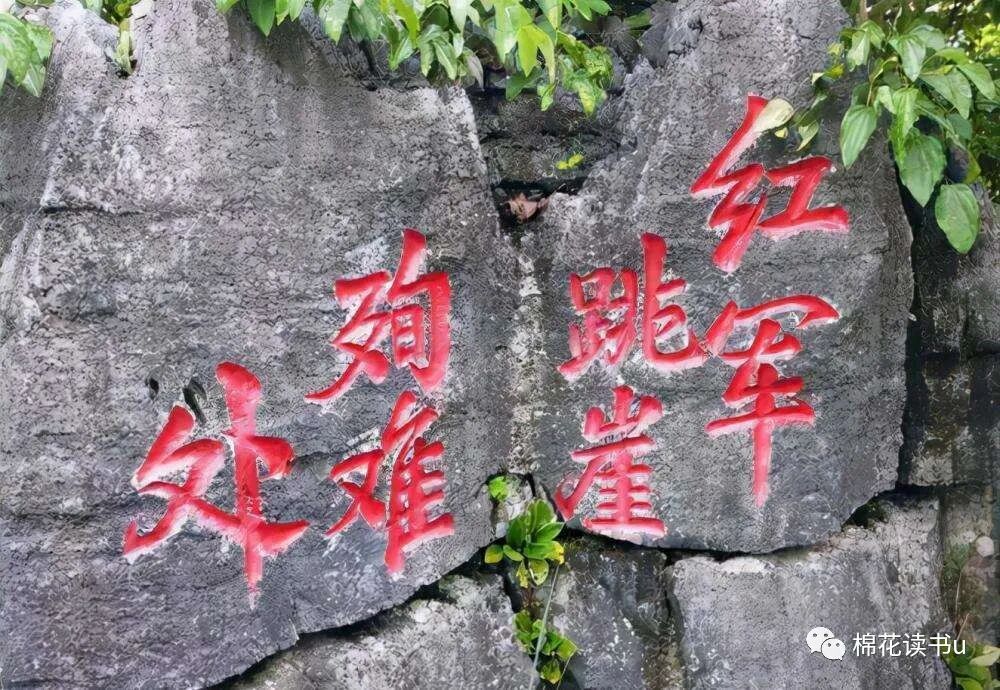 红军
跳崖
殉难
处
棉花读书u